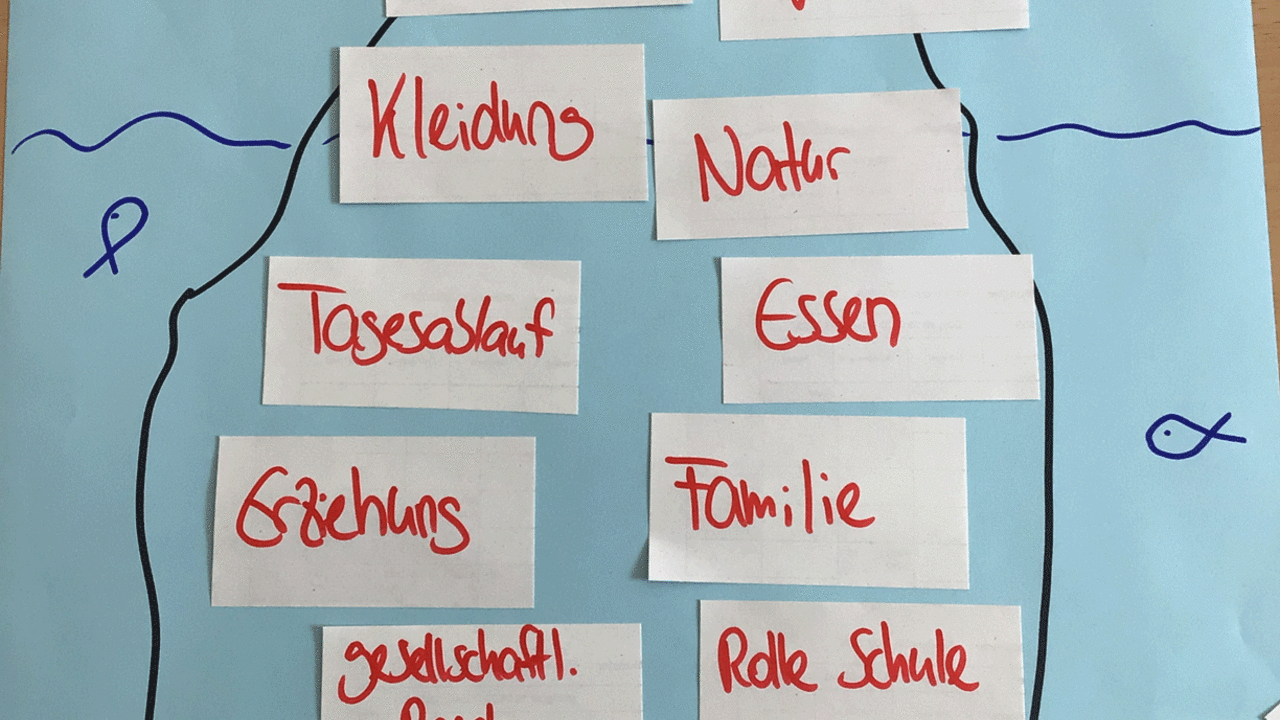 Kleidung
Natur
Tagesablauf
Essen
Erziehung
Familie
gesellschaftl.
Rolle Schule